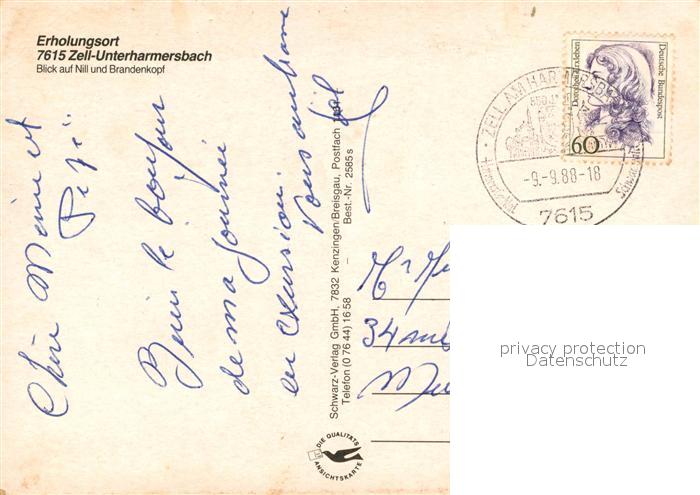 Erholungsort
7615 Zell-Unterharmersbach
Blick auf Nill und Brandenkopf
Chère Mémé et
Pépé
le bonjour
de ma journée
en excursion.
Vous embrasse
Schwarz-Verlag GmbH, 7832 Kenzingen/Breisgau, Postfach
Telefon (0 76 44) 16 58 – Best.-Nr. 2585 s
DIE QUALITÄTS
ANSICHTSKARTE
Deutsche Bundespost
60
ZELL AM HARMERSB
850 J
-9.-9.88-18
7615
34 rue
privacy protection
Datenschutz